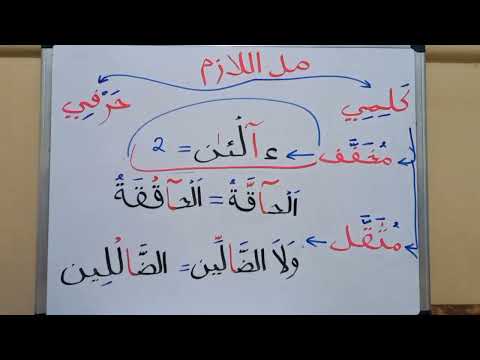 مد اللازم
كَلِمِي حَرْفِي
مُخَفَّف ءَآلْـَٰٔن = 2
اَلْحَآقَّةُ = اَلْحَآقْقَةُ
مُثَقَّل
وَلَا الضَّالِّين = الضَّالْلِين